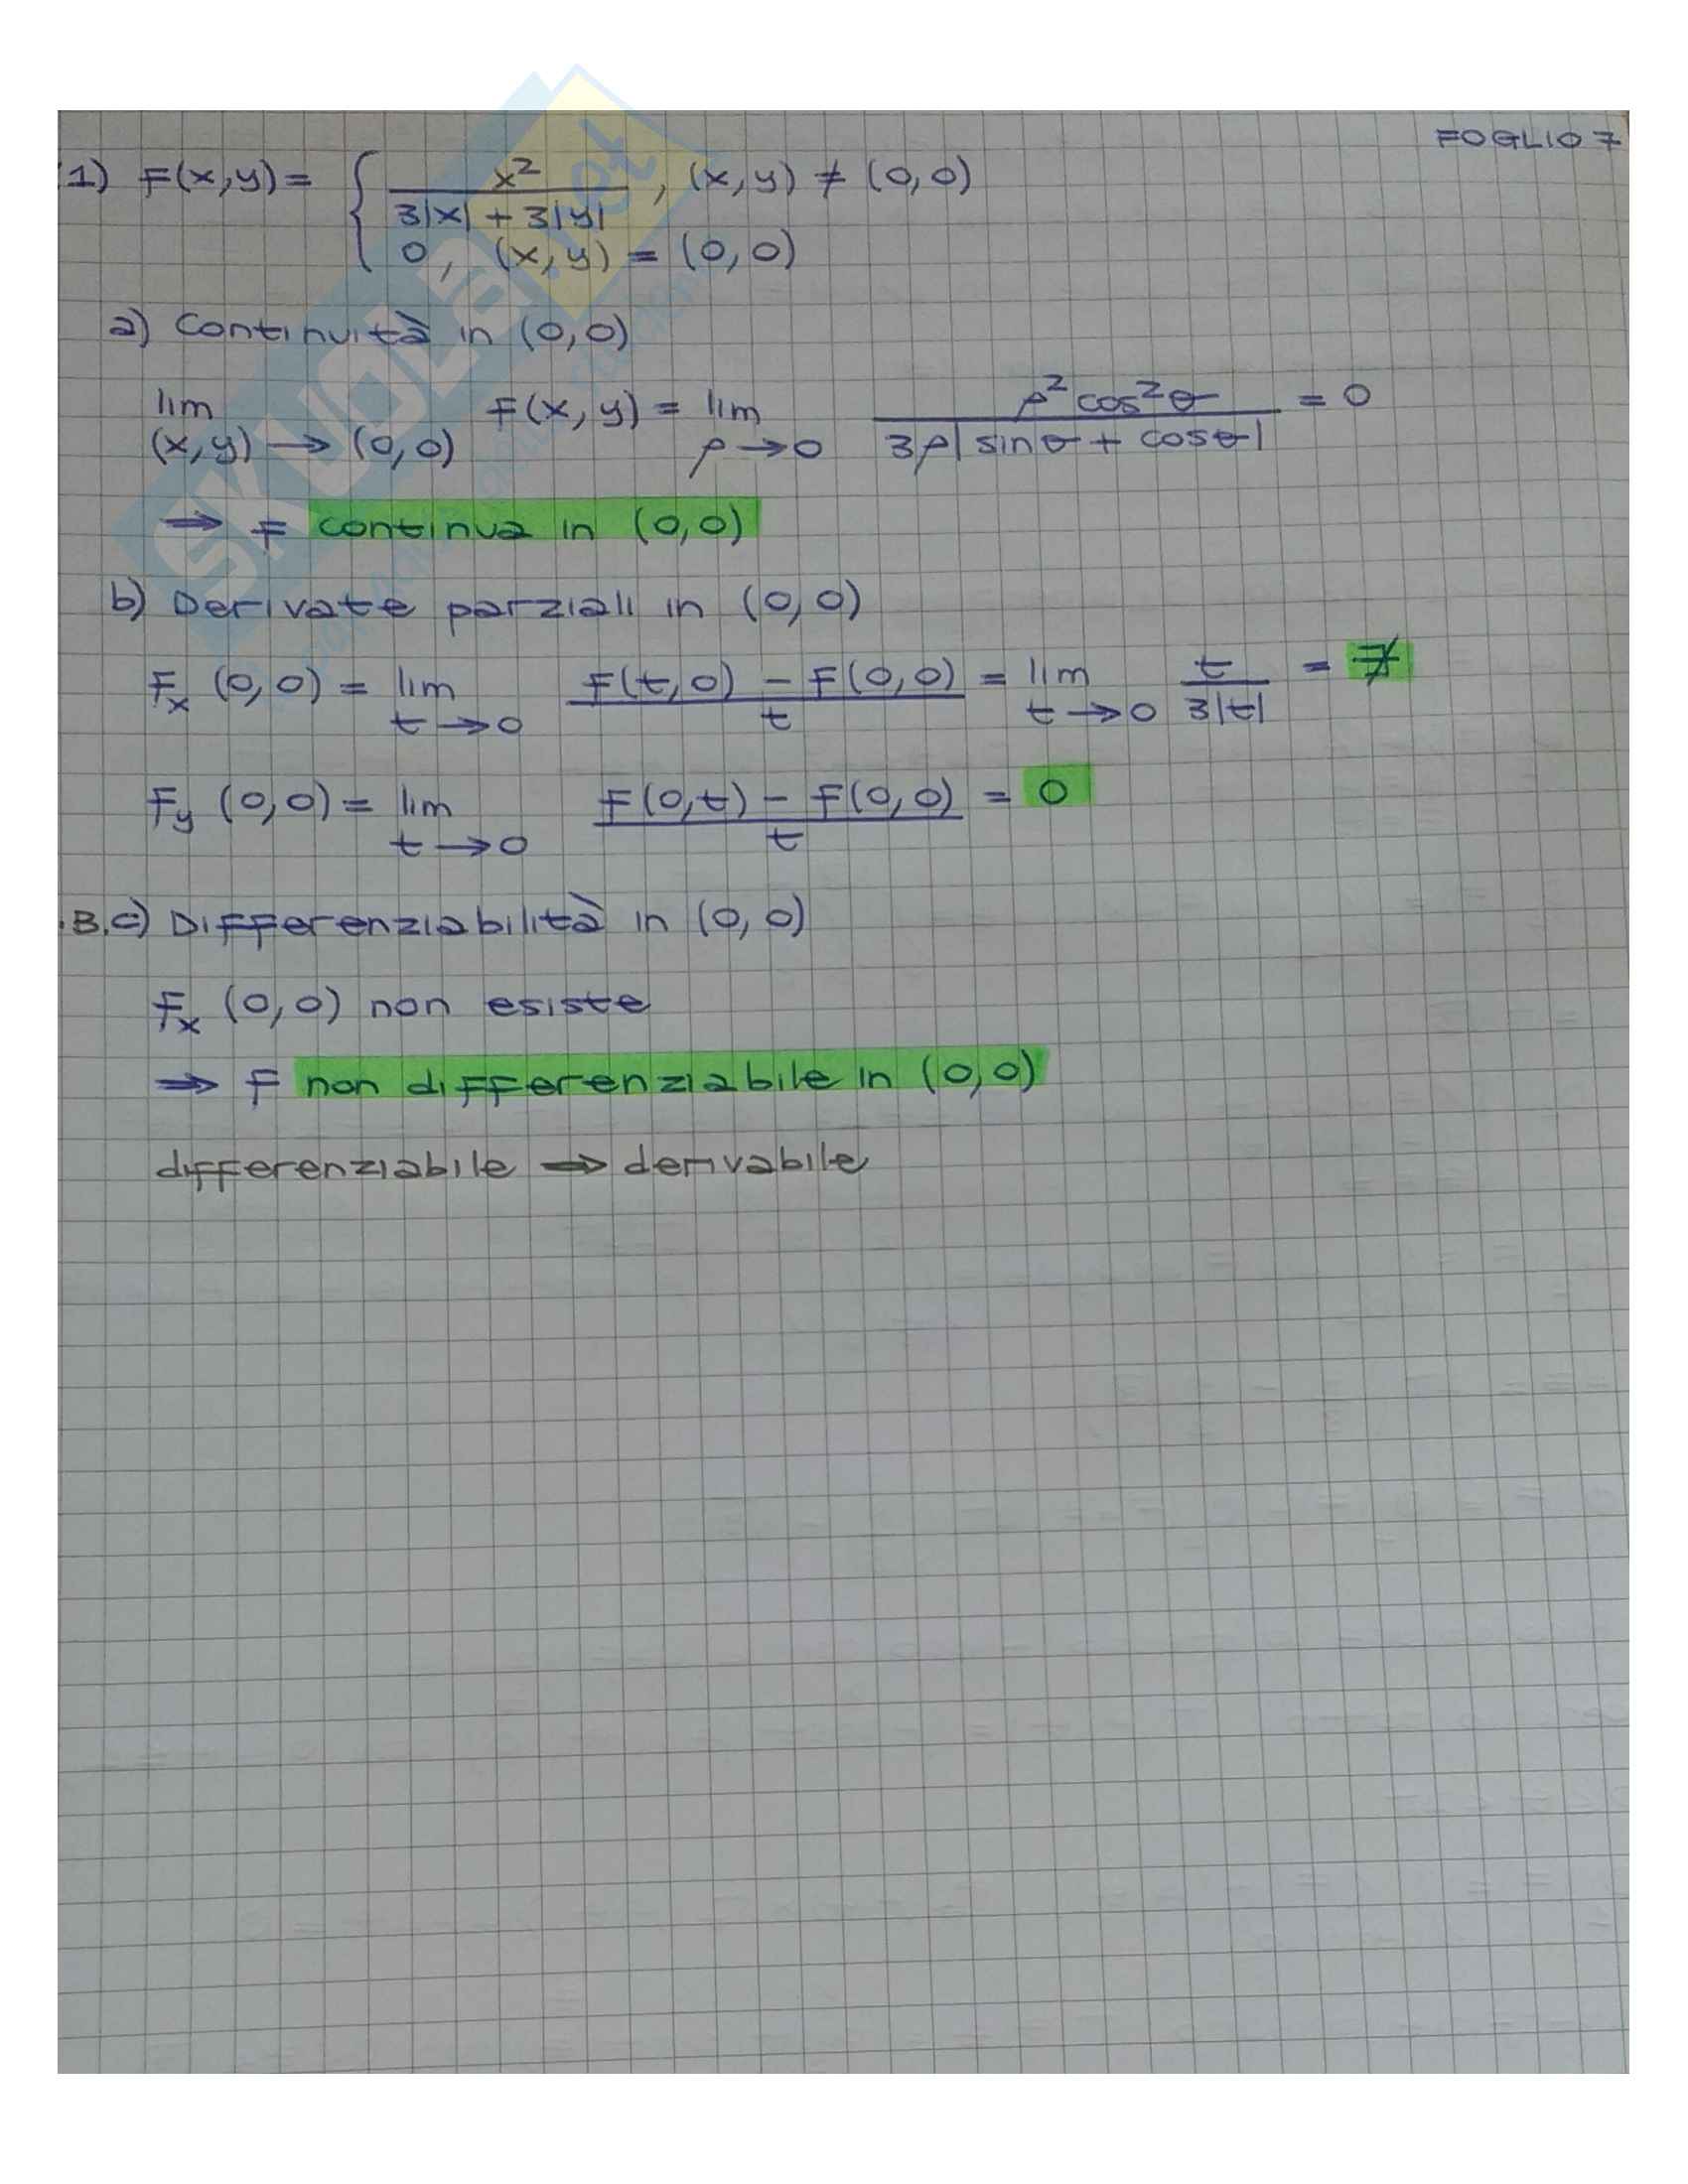 FOGLIO 7
1) F(x,y) = { x² / (3|x| + 3|y|) , (x,y) ≠ (0,0)
0, (x,y) = (0,0)
a) Continuità in (0,0)
lim (x,y)→(0,0) F(x,y) = lim ρ→0 ρ² cos²θ / (3ρ|sinθ + cosθ|) = 0
⇒ F continua in (0,0)
b) Derivate parziali in (0,0)
Fx (0,0) = lim t→0 (F(t,0) − F(0,0)) / t = lim t→0 t / (3|t|) = ∄
Fy (0,0) = lim t→0 (F(0,t) − F(0,0)) / t = 0
.B.c) Differenziabilità in (0,0)
Fx (0,0) non esiste
⇒ F non differenziabile in (0,0)
differenziabile ⇒ derivabile
SKUOLA.net